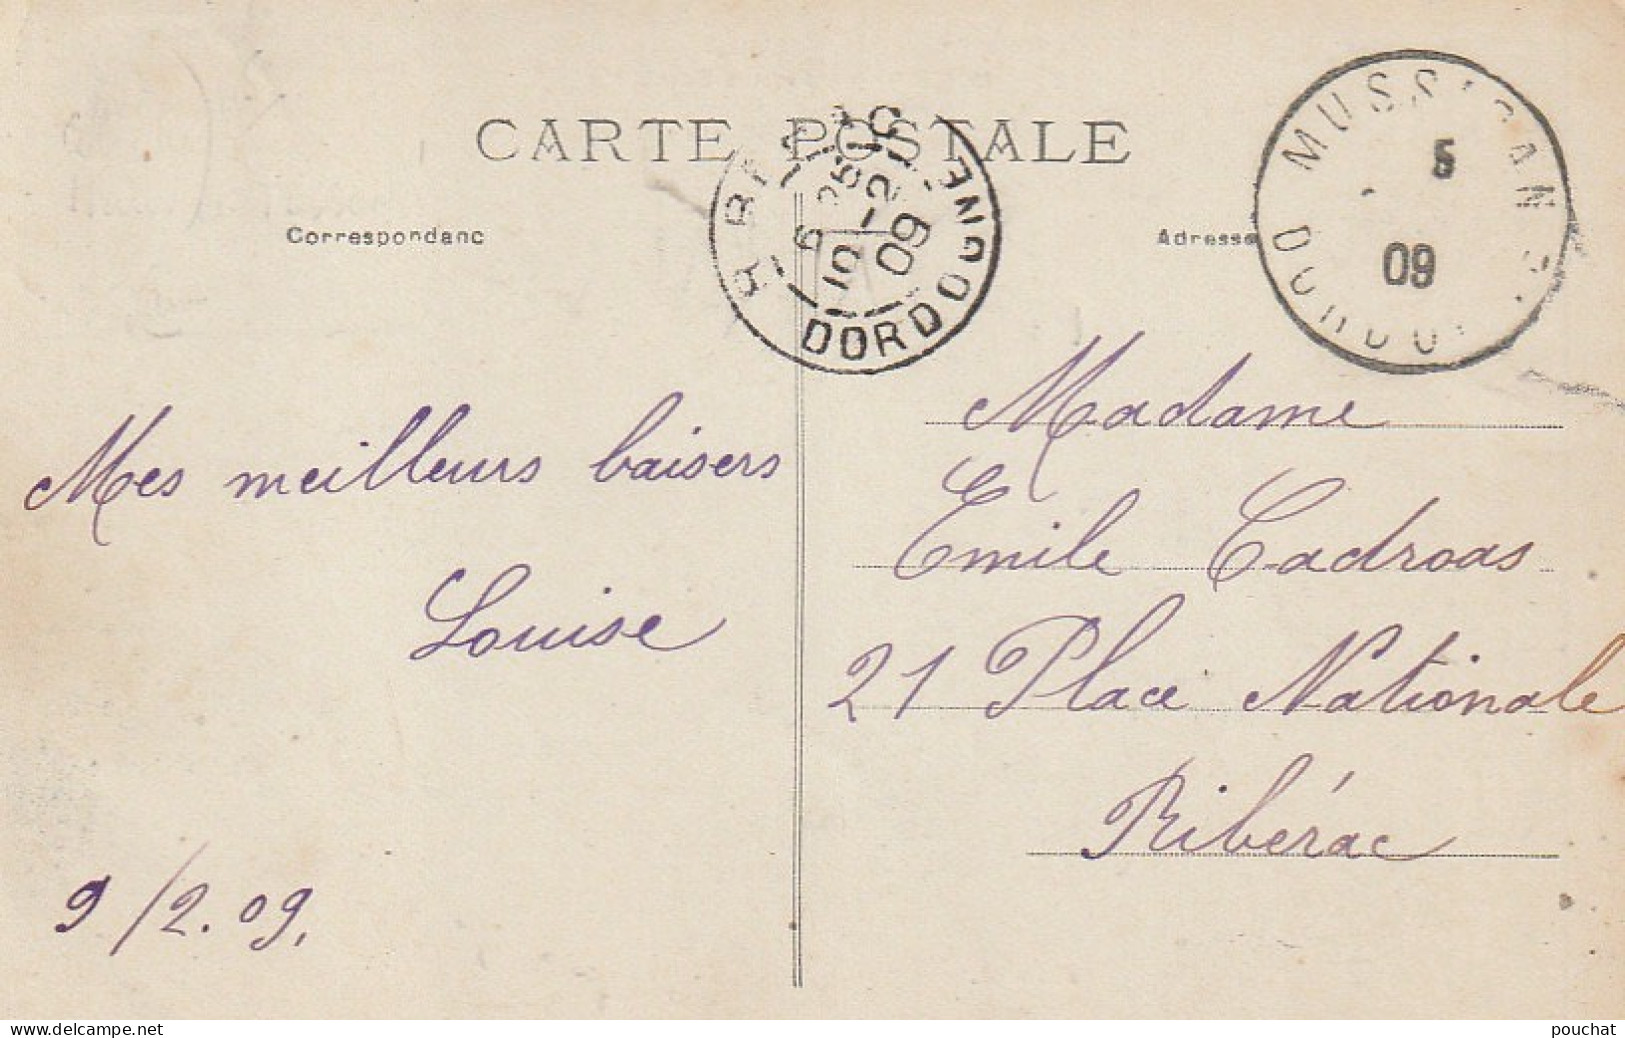 CARTE POSTALE
Correspondanc
Adresse
DORDOGNE
6 35
10 -2
09
MUSSIDAN
5
09
Mes meilleurs baisers
Louise
9/2.09.
Madame
Emile Cadroas
21 Place Nationale
Ribérac
www.delcampe.net
pouchat